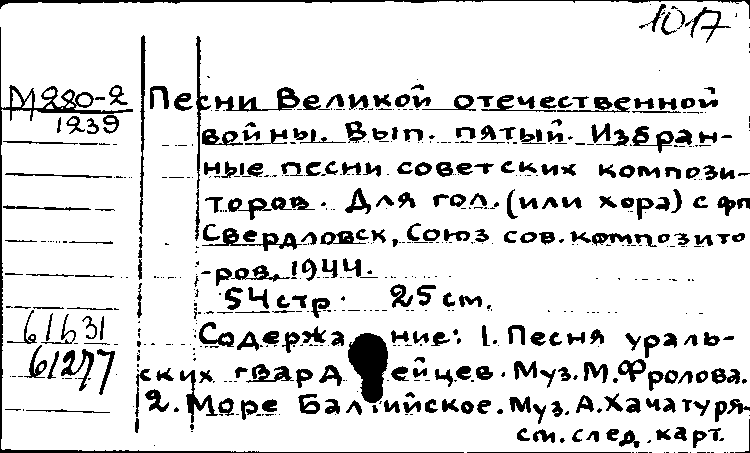 1017
М280-2 Песни Великой отечественной
1239 войны. Вып. пятый. Избран-
ные песни советских компози-
торов. Для гол. (или хора) с фп
Свердловск, Союз сов. композито
-ров, 1944.
54 стр. 25 см.
61631 Содержание: 1. Песня ураль-
61277 ских гвардейцев. Муз. М. Фролова.
2. Море Балтийское. Муз. А. Хачатуря-
см. след. карт.